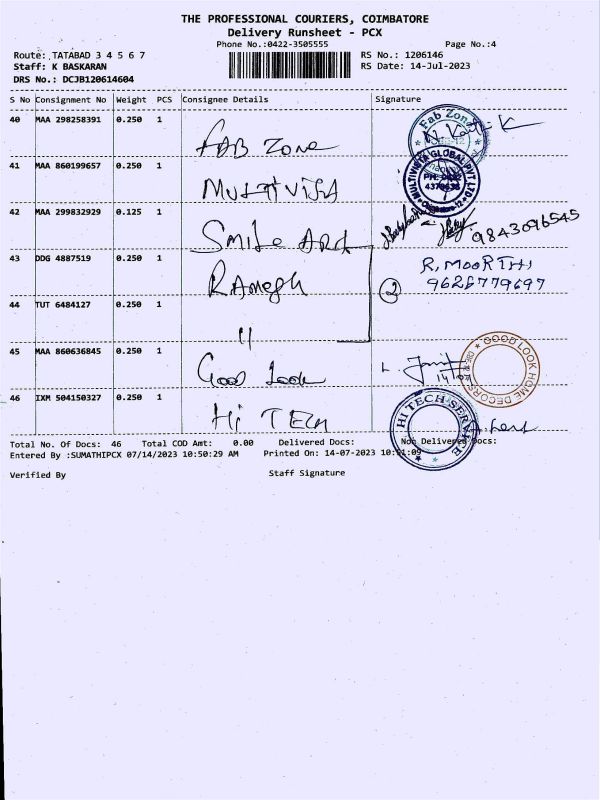 THE PROFESSIONAL COURIERS, COIMBATORE
Delivery Runsheet - PCX
Phone No.:0422-3505555 Page No.:4
Route: TATABAD 3 4 5 6 7 RS No.: 1206146
Staff: K BASKARAN RS Date: 14-Jul-2023
DRS No.: DCJB120614604
S No Consignment No Weight PCS Consignee Details Signature
40 MAA 298258391 0.250 1 FAB Zone Fab Zone
41 MAA 860199657 0.250 1 MULTIVISTA MULTIVISTA GLOBAL PVT LTD
42 MAA 299832929 0.125 1 Smile Art 9843096545
43 DDG 4887519 0.250 1 Ramesh R. MOORTHI
② 9626779697
44 TUT 6484127 0.250 1 "
45 MAA 860636845 0.250 1 Good Look GOOD LOOK HOME DECORS
46 IXM 504150327 0.250 1 Hi TECH HI TECH SERVICE
Total No. Of Docs: 46 Total COD Amt: 0.00 Delivered Docs: Not Delivered Docs:
Entered By :SUMATHIPCX 07/14/2023 10:50:29 AM Printed On: 14-07-2023 10:51:09
Verified By Staff Signature